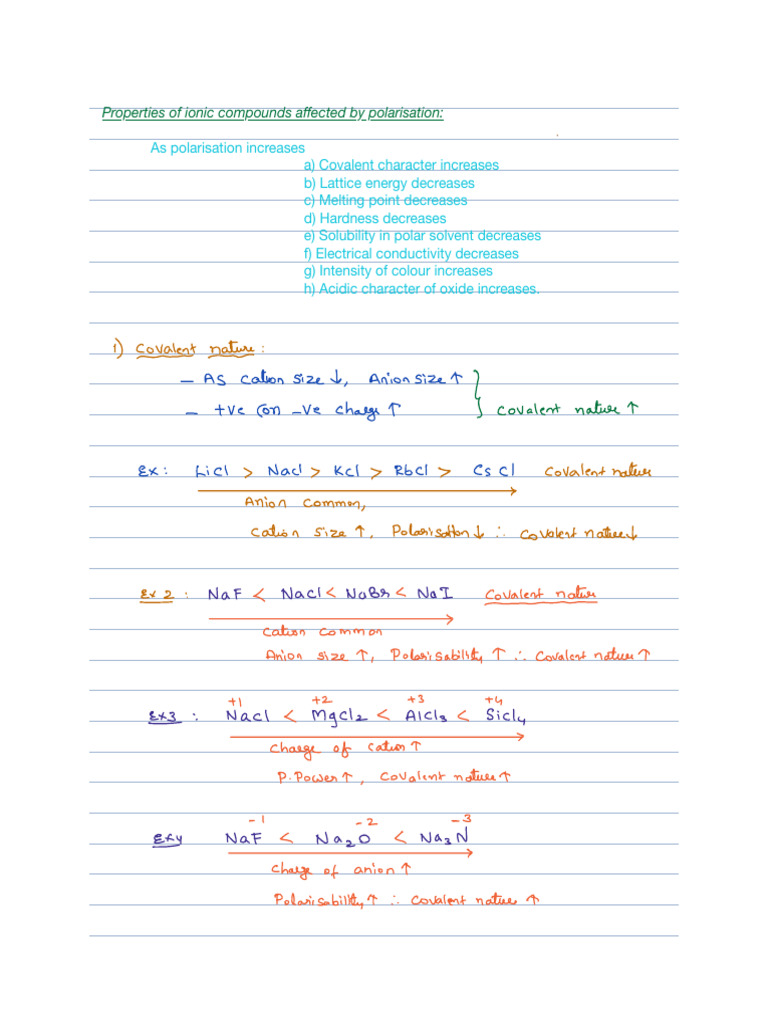 Properties of ionic compounds affected by polarisation:
As polarisation increases
a) Covalent character increases
b) Lattice energy decreases
c) Melting point decreases
d) Hardness decreases
e) Solubility in polar solvent decreases
f) Electrical conductivity decreases
g) Intensity of colour increases
h) Acidic character of oxide increases.
1) Covalent nature:
– As cation size ↓, Anion size ↑
– +ve (or) –ve charge ↑ } Covalent nature ↑
Ex: LiCl > NaCl > KCl > RbCl > CsCl Covalent nature
Anion common,
Cation size ↑, Polarisation ↓ ∴ Covalent nature ↓
Ex 2: NaF < NaCl < NaBr < NaI Covalent nature
Cation common
Anion size ↑, Polarisability ↑ ∴ Covalent nature ↑
+1 +2 +3 +4
Ex3: NaCl < MgCl₂ < AlCl₃ < SiCl₄
Charge of cation ↑
P.Power ↑, Covalent nature ↑
-1 -2 -3
Ex4 NaF < Na₂O < Na₃N
Charge of anion ↑
Polarisability ↑ ∴ Covalent nature ↑